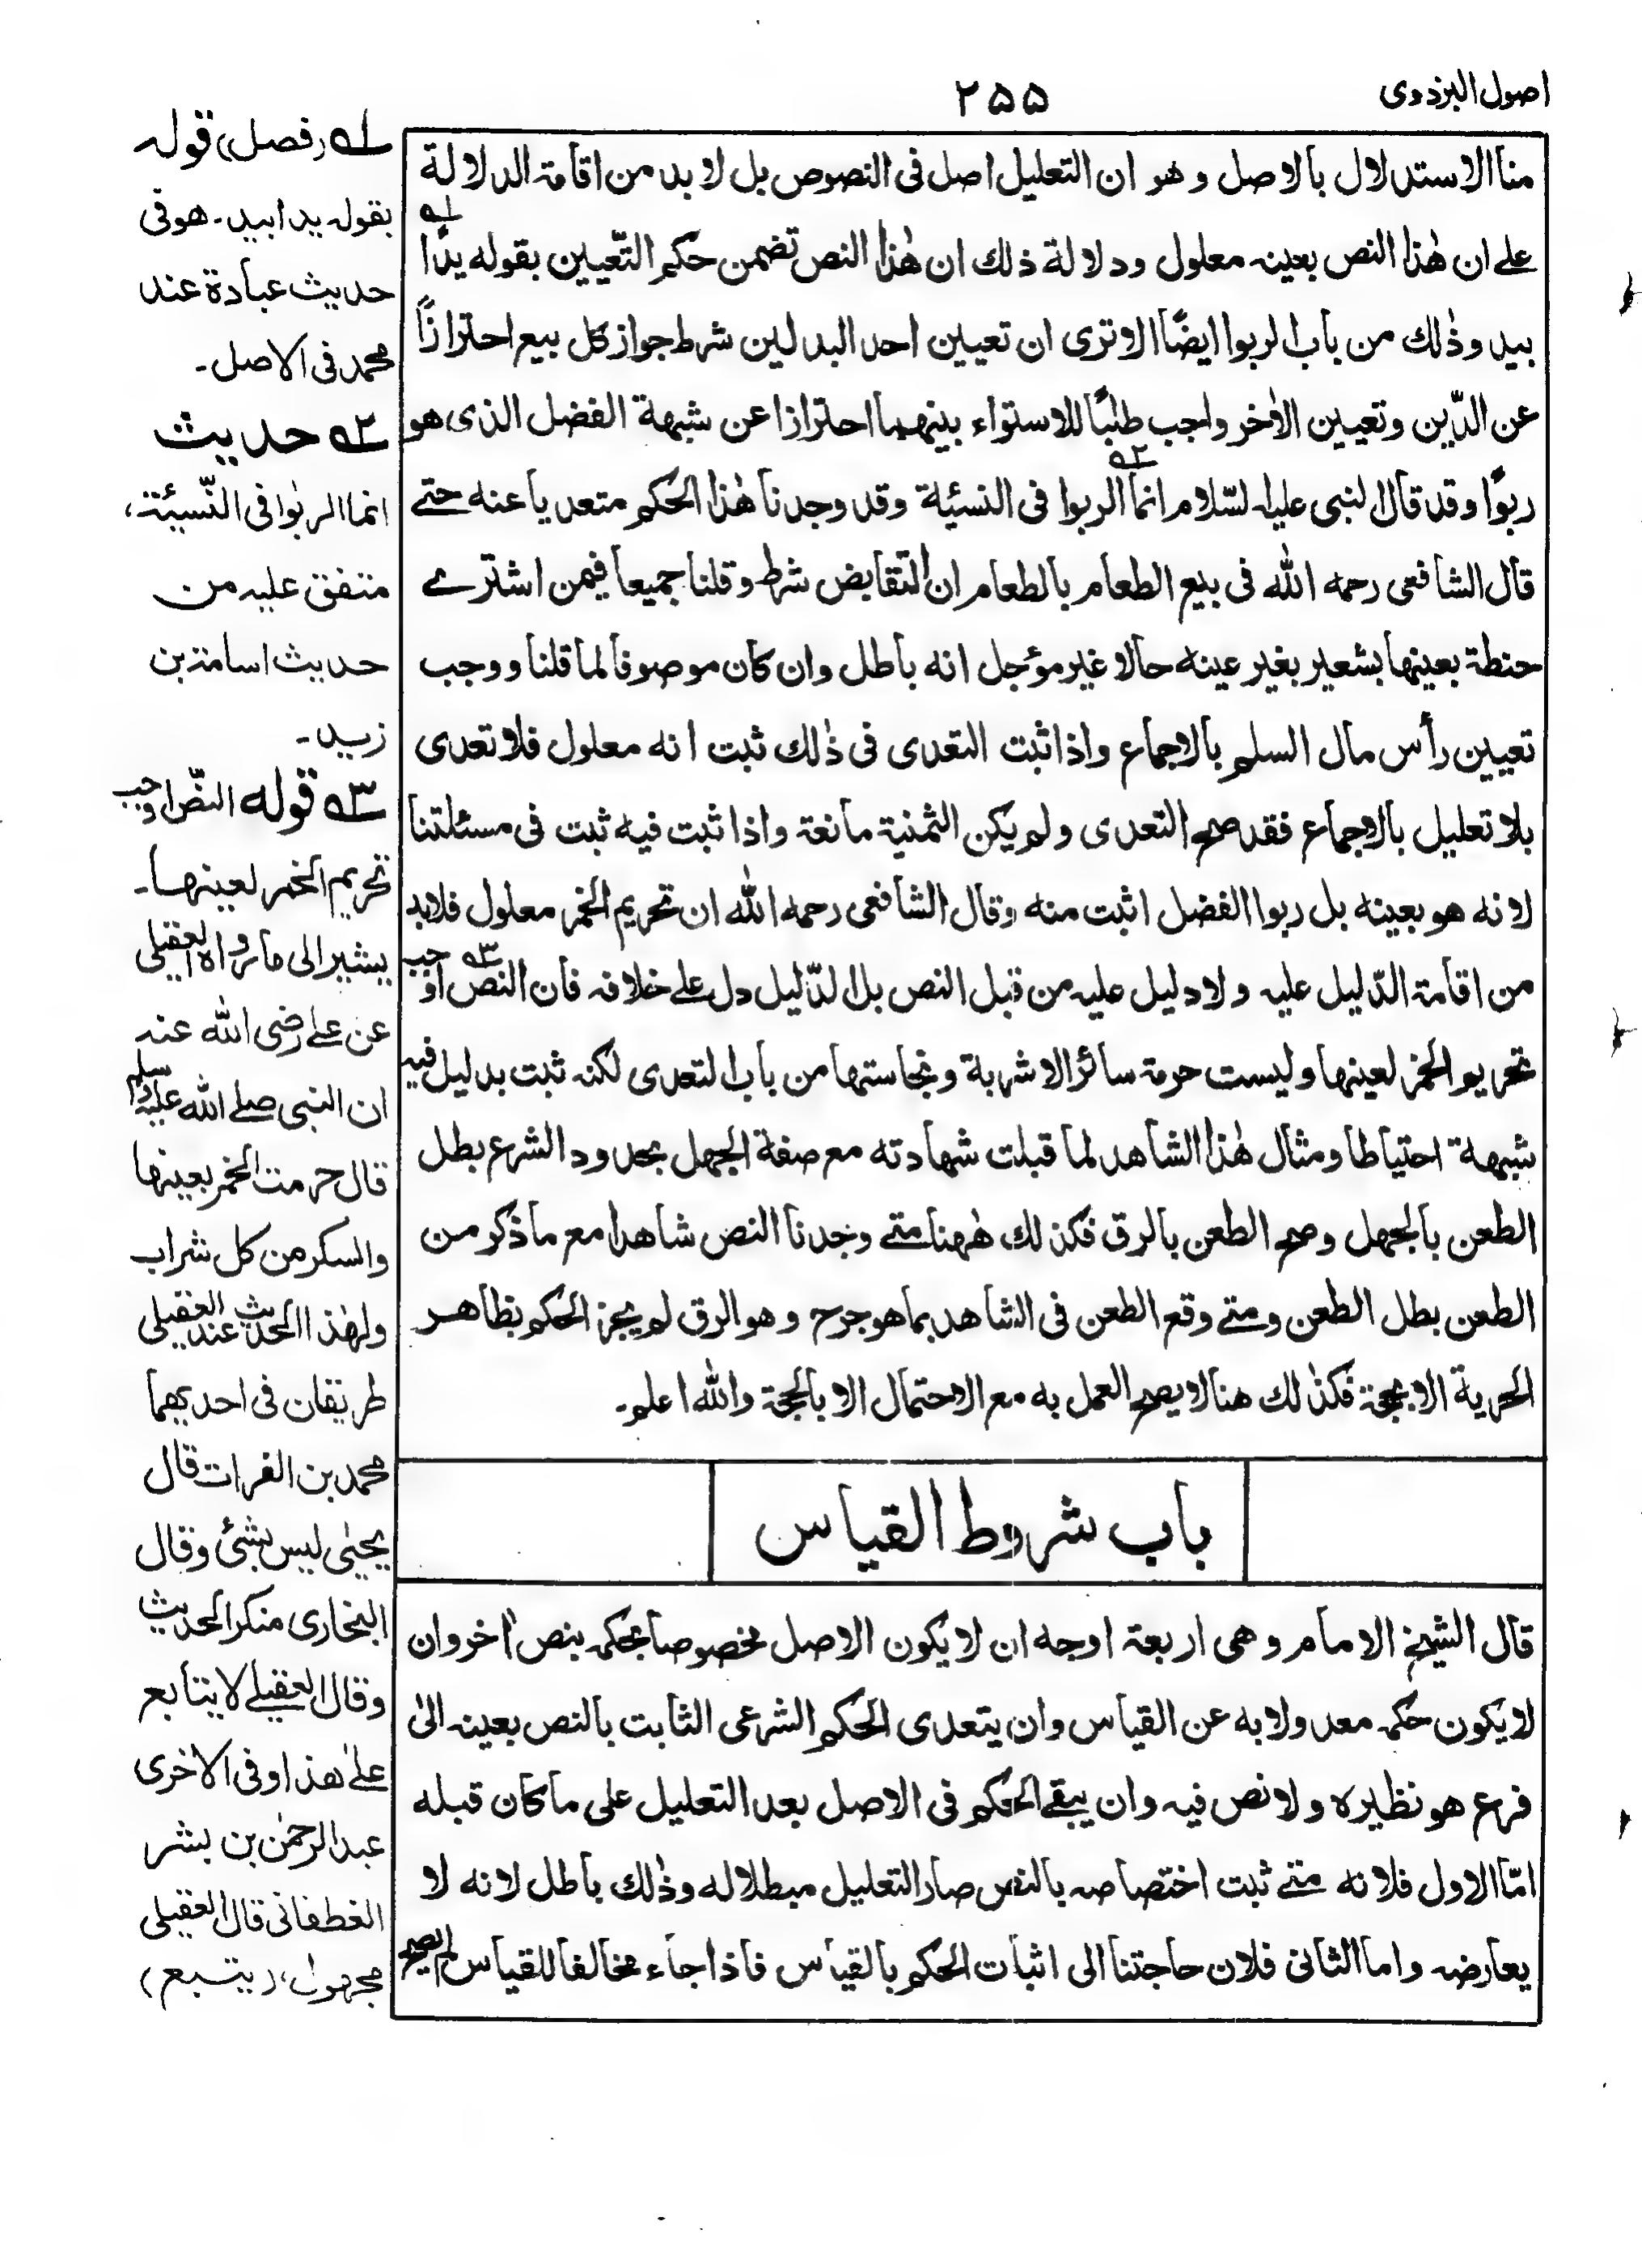 اصول البزدوی
۲۵۵
منا الاستدلال بالاصل وهو ان التعليل اصل فى النصوص بل لا بد من اقامة الدلالة
على ان هٰذا النص بعينه معلول ودلالة ذلك ان هٰذا النص تضمن حكم التّعيين بقوله يدًا
بيد وذٰلك من باب الربوا ايضًا الا ترى ان تعيين احد البدلين شرط جواز كل بيع احترازًا
عن الدّين وتعيين الاٰخر واجب طلبًا للاستواء بينهما احترازا عن شبهة الفضل الذى هو
ربوًا وقد قال النبى عليه السّلام انما الربوا فى النسيئة وقد وجدنا هٰذا الحكم متعديا عنه حتے
قال الشافعى رحمه الله فى بيع الطعام بالطعام ان التقابض شرط وقلنا جميعا فيمن اشترے
حنطة بعينها بشعير بغير عينه حالا غير مؤجل انه باطل وان كان موصوفا لما قلنا ووجب
تعيين رأس مال السلم بالاجماع واذا ثبت التعدى فى ذٰلك ثبت انه معلول فلا تعدى
بلا تعليل بالاجماع فقد صح التعدى ولم يكن الثمنية مانعة واذا ثبت فيه ثبت فى مسئلتنا
لانه هو بعينه بل ربوا الفضل اثبت منه وقال الشافعى رحمه الله ان تحريم الخمر معلول فلابد
من اقامة الدّليل عليه ولا دليل عليه من قبل النص بل الدّليل دل علے خلافه فان النص اوجب
تحريم الخمر لعينها وليست حرمة سائر الاشربة ونجاستها من باب التعدى لكنه ثبت بدليل فيه
شبهة احتياطا ومثال هٰذا الشاهد لما قبلت شهادته مع صفة الجهل بحدود الشرع بطل
الطعن بالجهل وصح الطعن بالرق فكذلك هٰهنا متے وجدنا النص شاهدا مع ما ذكر من
الطعن بطل الطعن ومتے وقع الطعن فى الشاهد بما هو جرح وهو الرق لم يجز الحكم بظاهر
الحرية الا بحجة فكذٰلك هنا لا يصح العمل به مع الاحتمال الا بالحجة والله اعلم۔
باب شروط القياس
قال الشيخ الامام وهى اربعة اوجه ان لا يكون الاصل مخصوصا بحكمه بنص اٰخر وان
لا يكون حكمه معدولا به عن القياس وان يتعدى الحكم الشرعى الثابت بالنص بعينه الىٰ
فرع هو نظيره ولا نص فيه وان يبقے الحكم فى الاصل بعد التعليل على ما كان قبله
امّا الاول فلانه متے ثبت اختصاصه بالنص صار التعليل مبطلا له وذٰلك باطل لانه لا
يعارضه واما الثانى فلان حاجتنا الى اثبات الحكم بالقياس فاذا جاء مخالفا للقياس لم يصح
۱ـه (فصل) قوله
بقوله يدا بيد۔ هو فى
حديث عبادة عند
محمد فى الاصل۔
۲ـه حديث
انما الربٰوا فى النّسيئة،
متفق عليه من
حديث اسامة بن
زيد۔
۳ـه قوله النصّ اوجب
تحريم الخمر لعينها۔
يشير الى ما رواه العقيلى
عن علے رضى الله عنه
ان النبى صلے الله عليه وسلم
قال حرمت الخمر بعينها
والسكر من كل شراب
ولهٰذا الحديث عند العقيلى
طريقان فى احديهما
محمد بن الفرات قال
يحيٰى ليس بشئ وقال
البخارى منكر الحديث
وقال العقيلے لا يتابع
علےٰ هذا وفى الاخرى
عبد الرحمٰن بن بشر
الغطفانى قال العقيلى
مجهول، (يتبع)